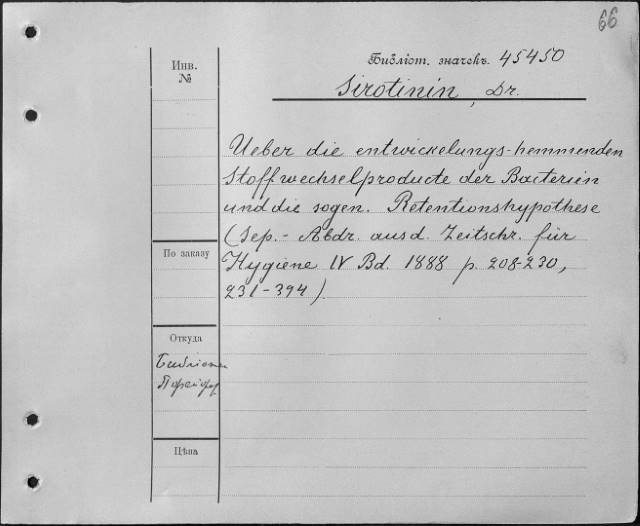 66
Инв.
№
Бібліот. значекъ. 45450
Sirotinin, Dr.
Ueber die entwickelungs-hemmenden
Stoffwechselproducte der Bacterien
und die sogen. Retentionshypothese
(Sep.- Abdr. aus d. Zeitschr. für
Hygiene IV Bd. 1888 p. 208-230,
231-394)
По заказу
Откуда
Цѣна